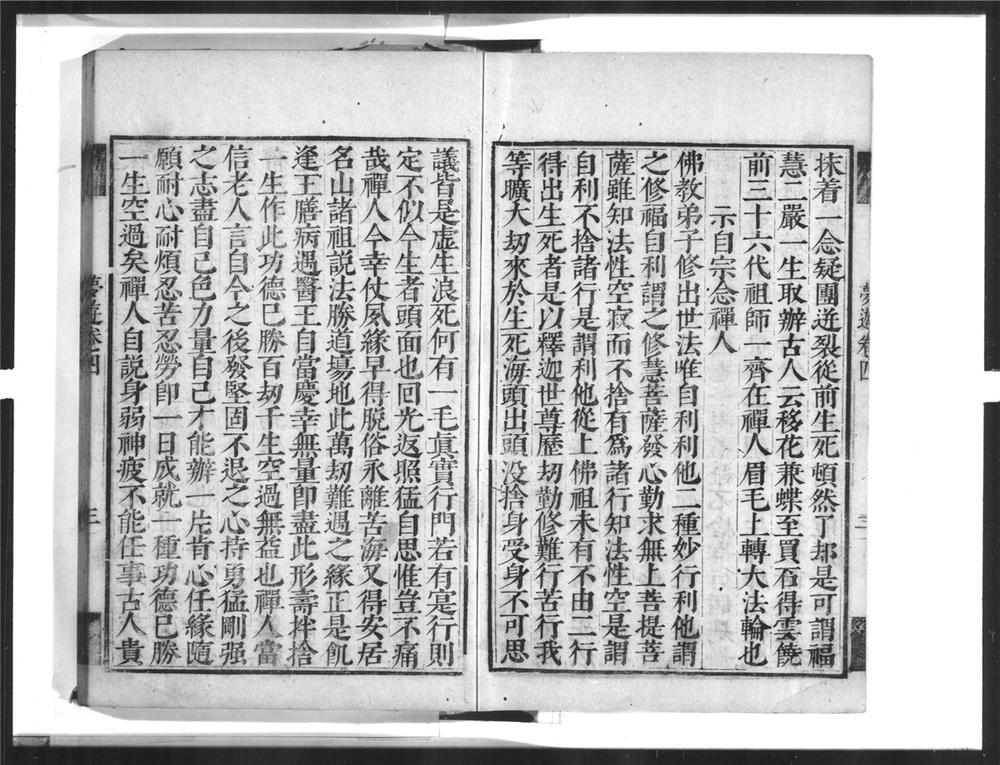 抹着一念疑團迸裂從前生死頓然了却是可謂福
慧二嚴一生取辦古人云移花兼蝶至買石得雲饒
前三十六代祖師一齊在禪人眉毛上轉大法輪也
示自宗念禪人
佛教弟子修出世法唯自利利他二種妙行利他謂
之修福自利謂之修慧菩薩發心勤求無上菩提菩
薩雖知法性空寂而不捨有爲諸行知法性空是謂
自利不捨諸行是謂利他從上佛祖未有不由二行
得出生死者是以釋迦世尊歷劫勤修難行苦行我
等曠大劫來於生死海頭出頭没捨身受身不可思
夢遊卷四
三
議皆是虚生浪死何有一毛眞實行門若有寔行則
定不似今生者頭面也回光返照猛自思惟豈不痛
哉禪人今幸仗夙緣早得脫俗永離苦海又得安居
名山諸祖説法勝道場地此萬劫難遇之緣正是飢
逢王膳病遇醫王自當慶幸無量即盡此形壽拌捨
一生作此功德已勝百劫千生空過無益也禪人當
信老人言自今之後發堅固不退之心持勇猛剛强
之志盡自己色力量自己才能辦一片肯心任緣隨
願耐心耐煩忍苦忍勞即一日成就一種功德已勝
一生空過矣禪人自説身弱神疲不能任事古人貴
夢遊卷四
三